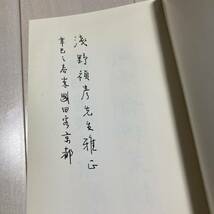 浅野禎彦先生雅正
辛巳之春 國田客京都